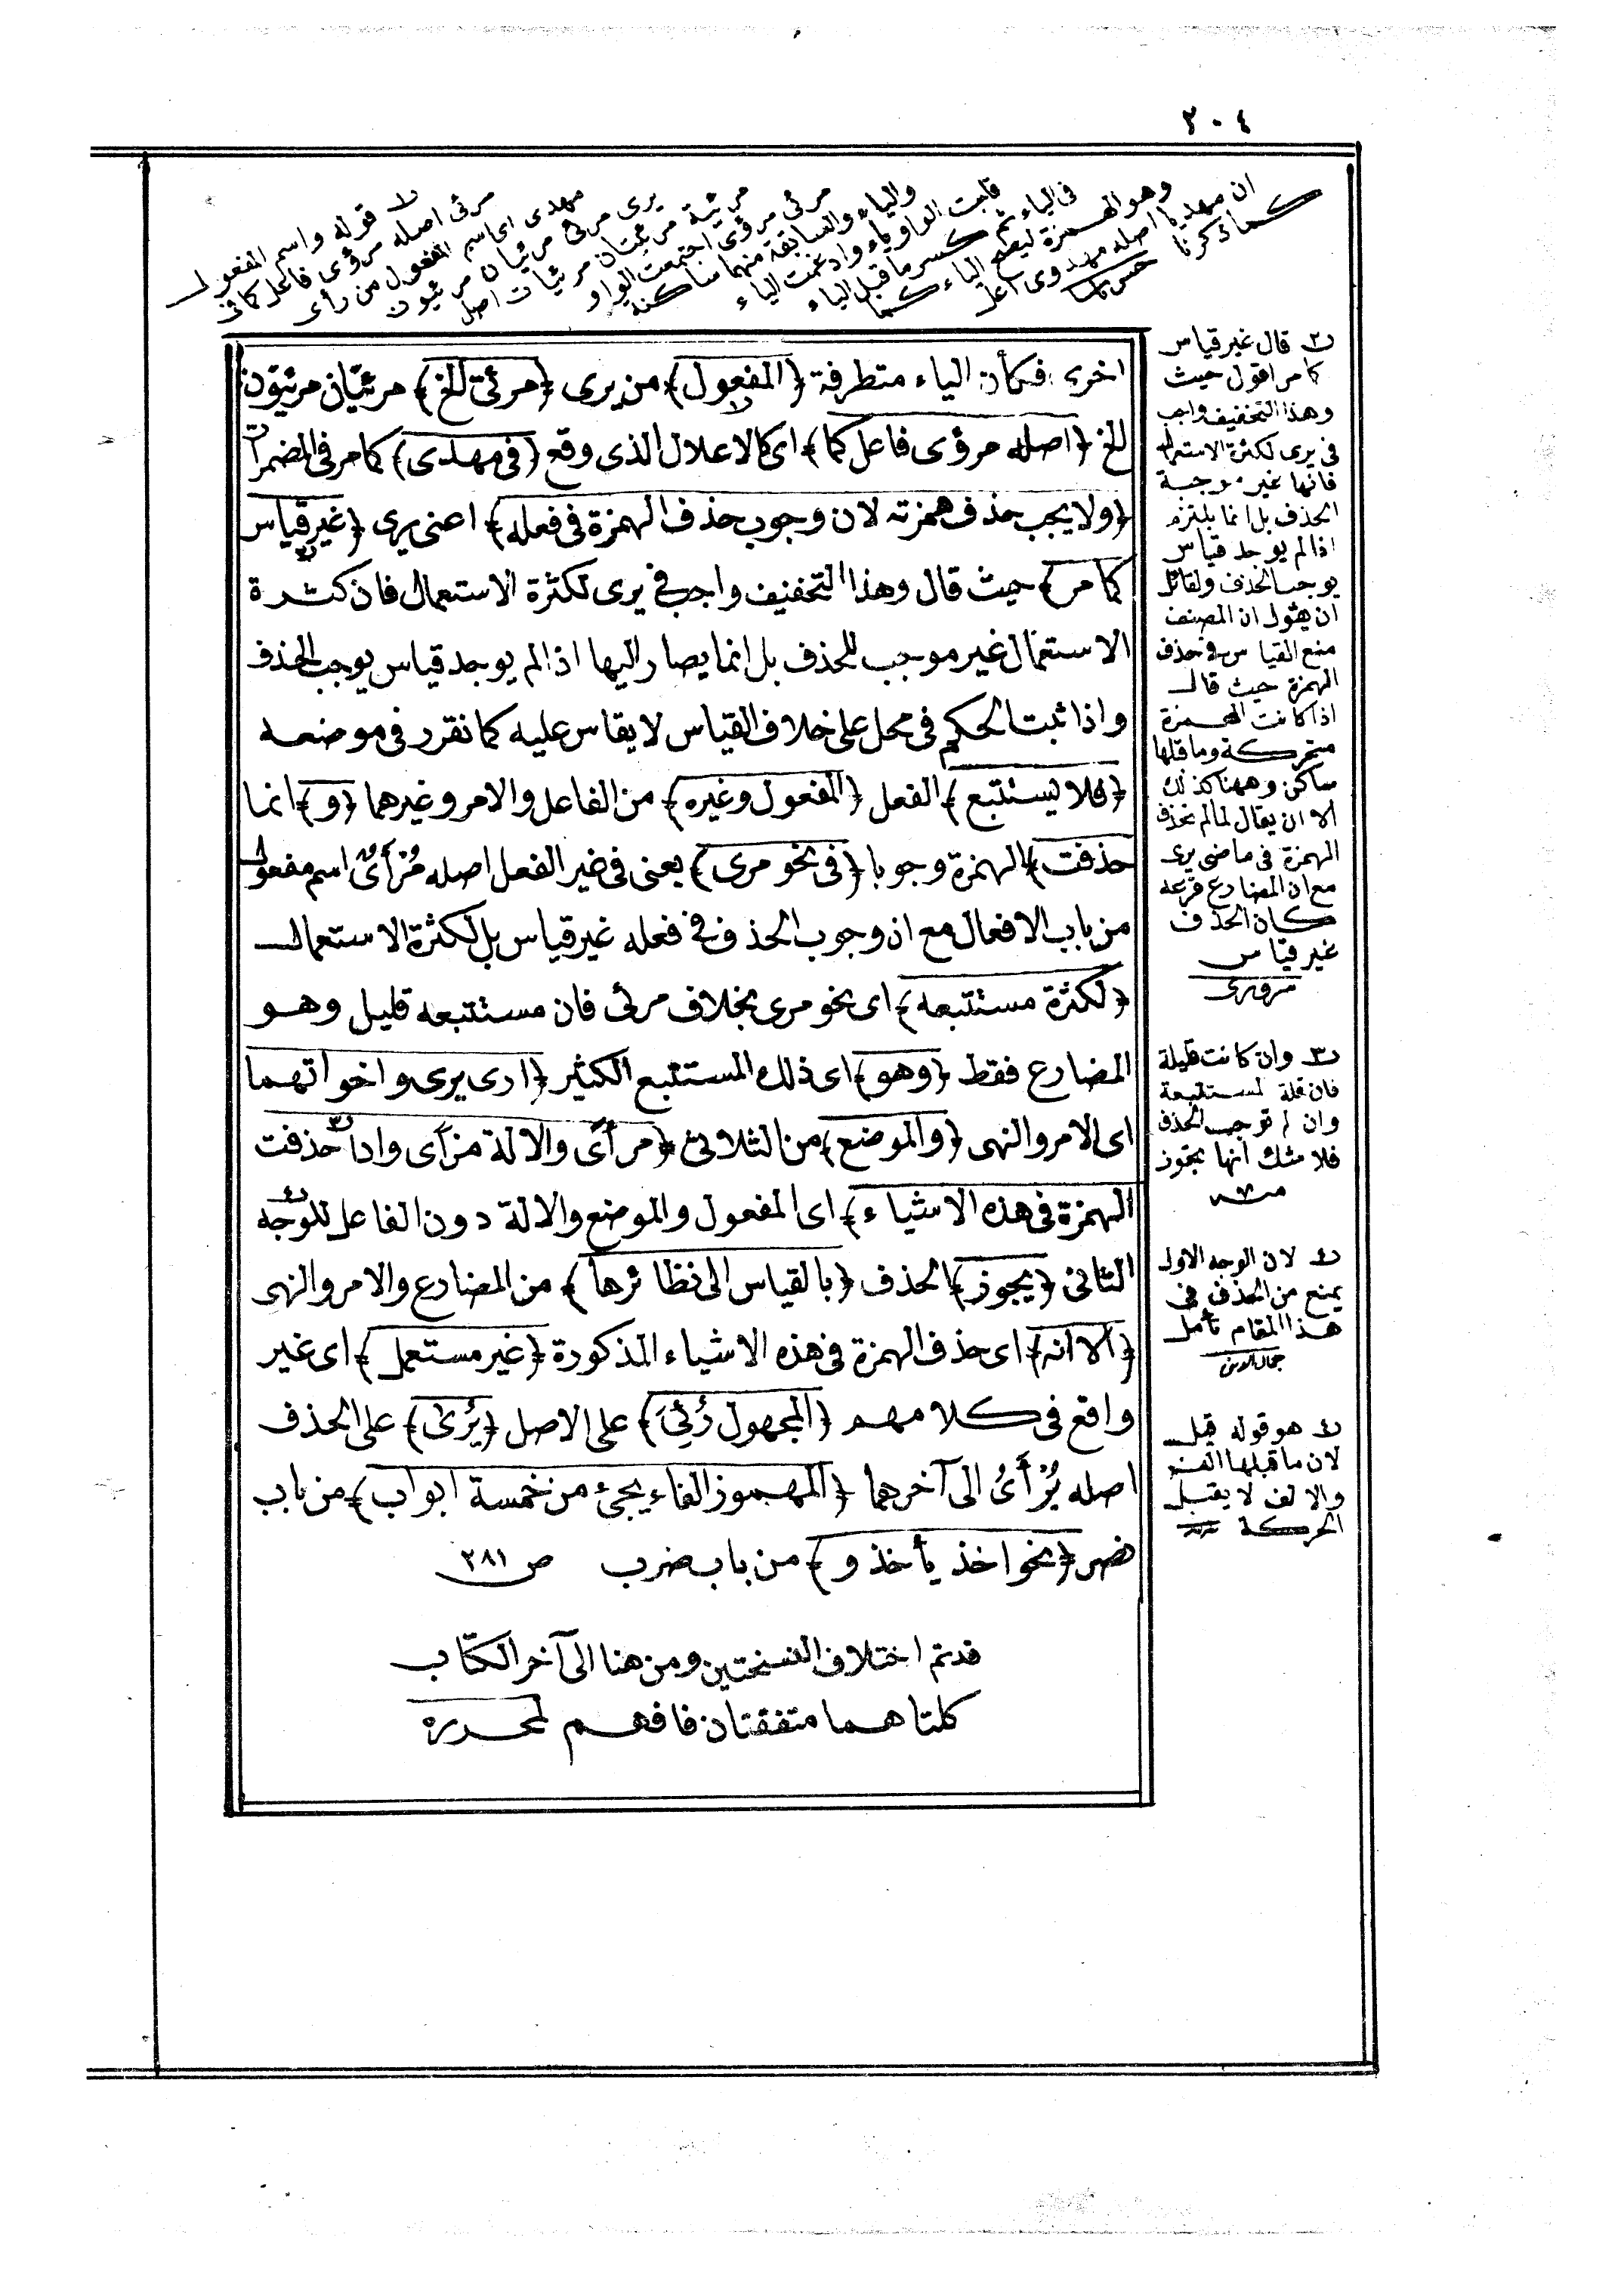 ٢٠٤
لا قوله واسم المفعول
مرئى اصله مرؤى فاعل كما فى
مهدى اى اسم المفعول من رأى
يرى مرئى مرئيان مرئيون
مرئية مرئيتان مرئيات اصل
مرئى مرؤى اجتمعت الواو
والياء والسابقة منهما ساكنة
قلبت الواو ياء وادغمت الياء
فى الياء ثم كسر ما قبل الياء
وهو الهمزة ليصح الياء كما
ان مهديا اصله مهدوى اعل
كما ذكرنا
اخرى فكأن الياء متطرفة ﴿المفعول﴾ من يرى ﴿مرئى الخ﴾ مرئيان مرئيون
الخ ﴿اصله مرؤى فاعل كما﴾ اى كالاعلال الذى وقع ﴿فى مهدى﴾ كما مر فى المضمرات
﴿ولا يجب حذف همزته لان وجوب حذف الهمزة فى فعله﴾ اعنى يرى ﴿غير قياس
كما مر﴾ حيث قال وهذا التخفيف واجب فى يرى لكثرة الاستعمال فان كثرة
الاستعمال غير موجب للحذف بل انما يصار اليها اذا لم يوجد قياس يوجب الحذف
واذا ثبت الحكم فى محل على خلاف القياس لا يقاس عليه كما تقرر فى موضعه
﴿فلا يستتبع﴾ الفعل ﴿المفعول وغيره﴾ من الفاعل والامر وغيرهما ﴿و﴾ انما
حذفت﴾ الهمزة وجوبا ﴿فى نحو مرى﴾ يعنى فى غير الفعل اصله مُرْأَىٌ اسم مفعول
من باب الافعال مع ان وجوب الحذف فى فعله غير قياس بل لكثرة الاستعمال
﴿لكثرة مستتبعه﴾ اى نحو مرى بخلاف مرئى فان مستتبعه قليل وهو
المضارع فقط ﴿وهو﴾ اى ذلك المستتبع الكثير ﴿ارى يرى واخواتهما
اى الامر والنهى ﴿والموضع﴾ من الثلاثى ﴿مرأًى والالة مرآى واذا حذفت
الهمزة فى هذه الاشياء﴾ اى المفعول والموضع والالة دون الفاعل للوجه
الثانى ﴿يجوز﴾ الحذف ﴿بالقياس الى نظائرها﴾ من المضارع والامر والنهى
﴿الا انه﴾ اى حذف الهمزة فى هذه الاشياء المذكورة ﴿غير مستعمل﴾ اى غير
واقع فى كلامهم ﴿المجهول رُئِىَ﴾ على الاصل ﴿يُرَى﴾ على الحذف
اصله يُرْأَىُ الى آخرهما ﴿المهموز الفاء يجئ من خمسة ابواب﴾ من باب
نصر ﴿نحو اخذ يأخذ و﴾ من باب ضرب ص ٢٨١
قد تم اختلاف النسختين ومن هنا الى آخر الكتاب
كلتاهما متفقتان فافهم لمحرره
٢ قال غير قياس
كما مر اقول حيث
وهذا التخفيف واجب
فى يرى لكثرة الاستعمال
فانها غير موجبة
الحذف بل انما يلتزم
اذا لم يوجد قياس
يوجب الحذف ولقائل
ان يقول ان المصنف
منع القياس فى حذف
الهمزة حيث قال
اذا كانت الهمزة
متحركة وما قبلها
ساكن وههنا كذلك
الا ان يقال لما لم يحذف
الهمزة فى ماضى يرى
مع ان المضارع فرعه
كان الحذف
غير قياس
سرورى
٣ وان كانت قليلة
فان قلة المستتبعة
وان لم توجب الحذف
فلا شك انها يجوز
منه
٤ لان الوجه الاول
يمنع من الحذف فى
هذا المقام تأمل
جمال الدين
٤ هو قوله قيل
لان ما قبلها الف
والالف لا يقبل
الحركة